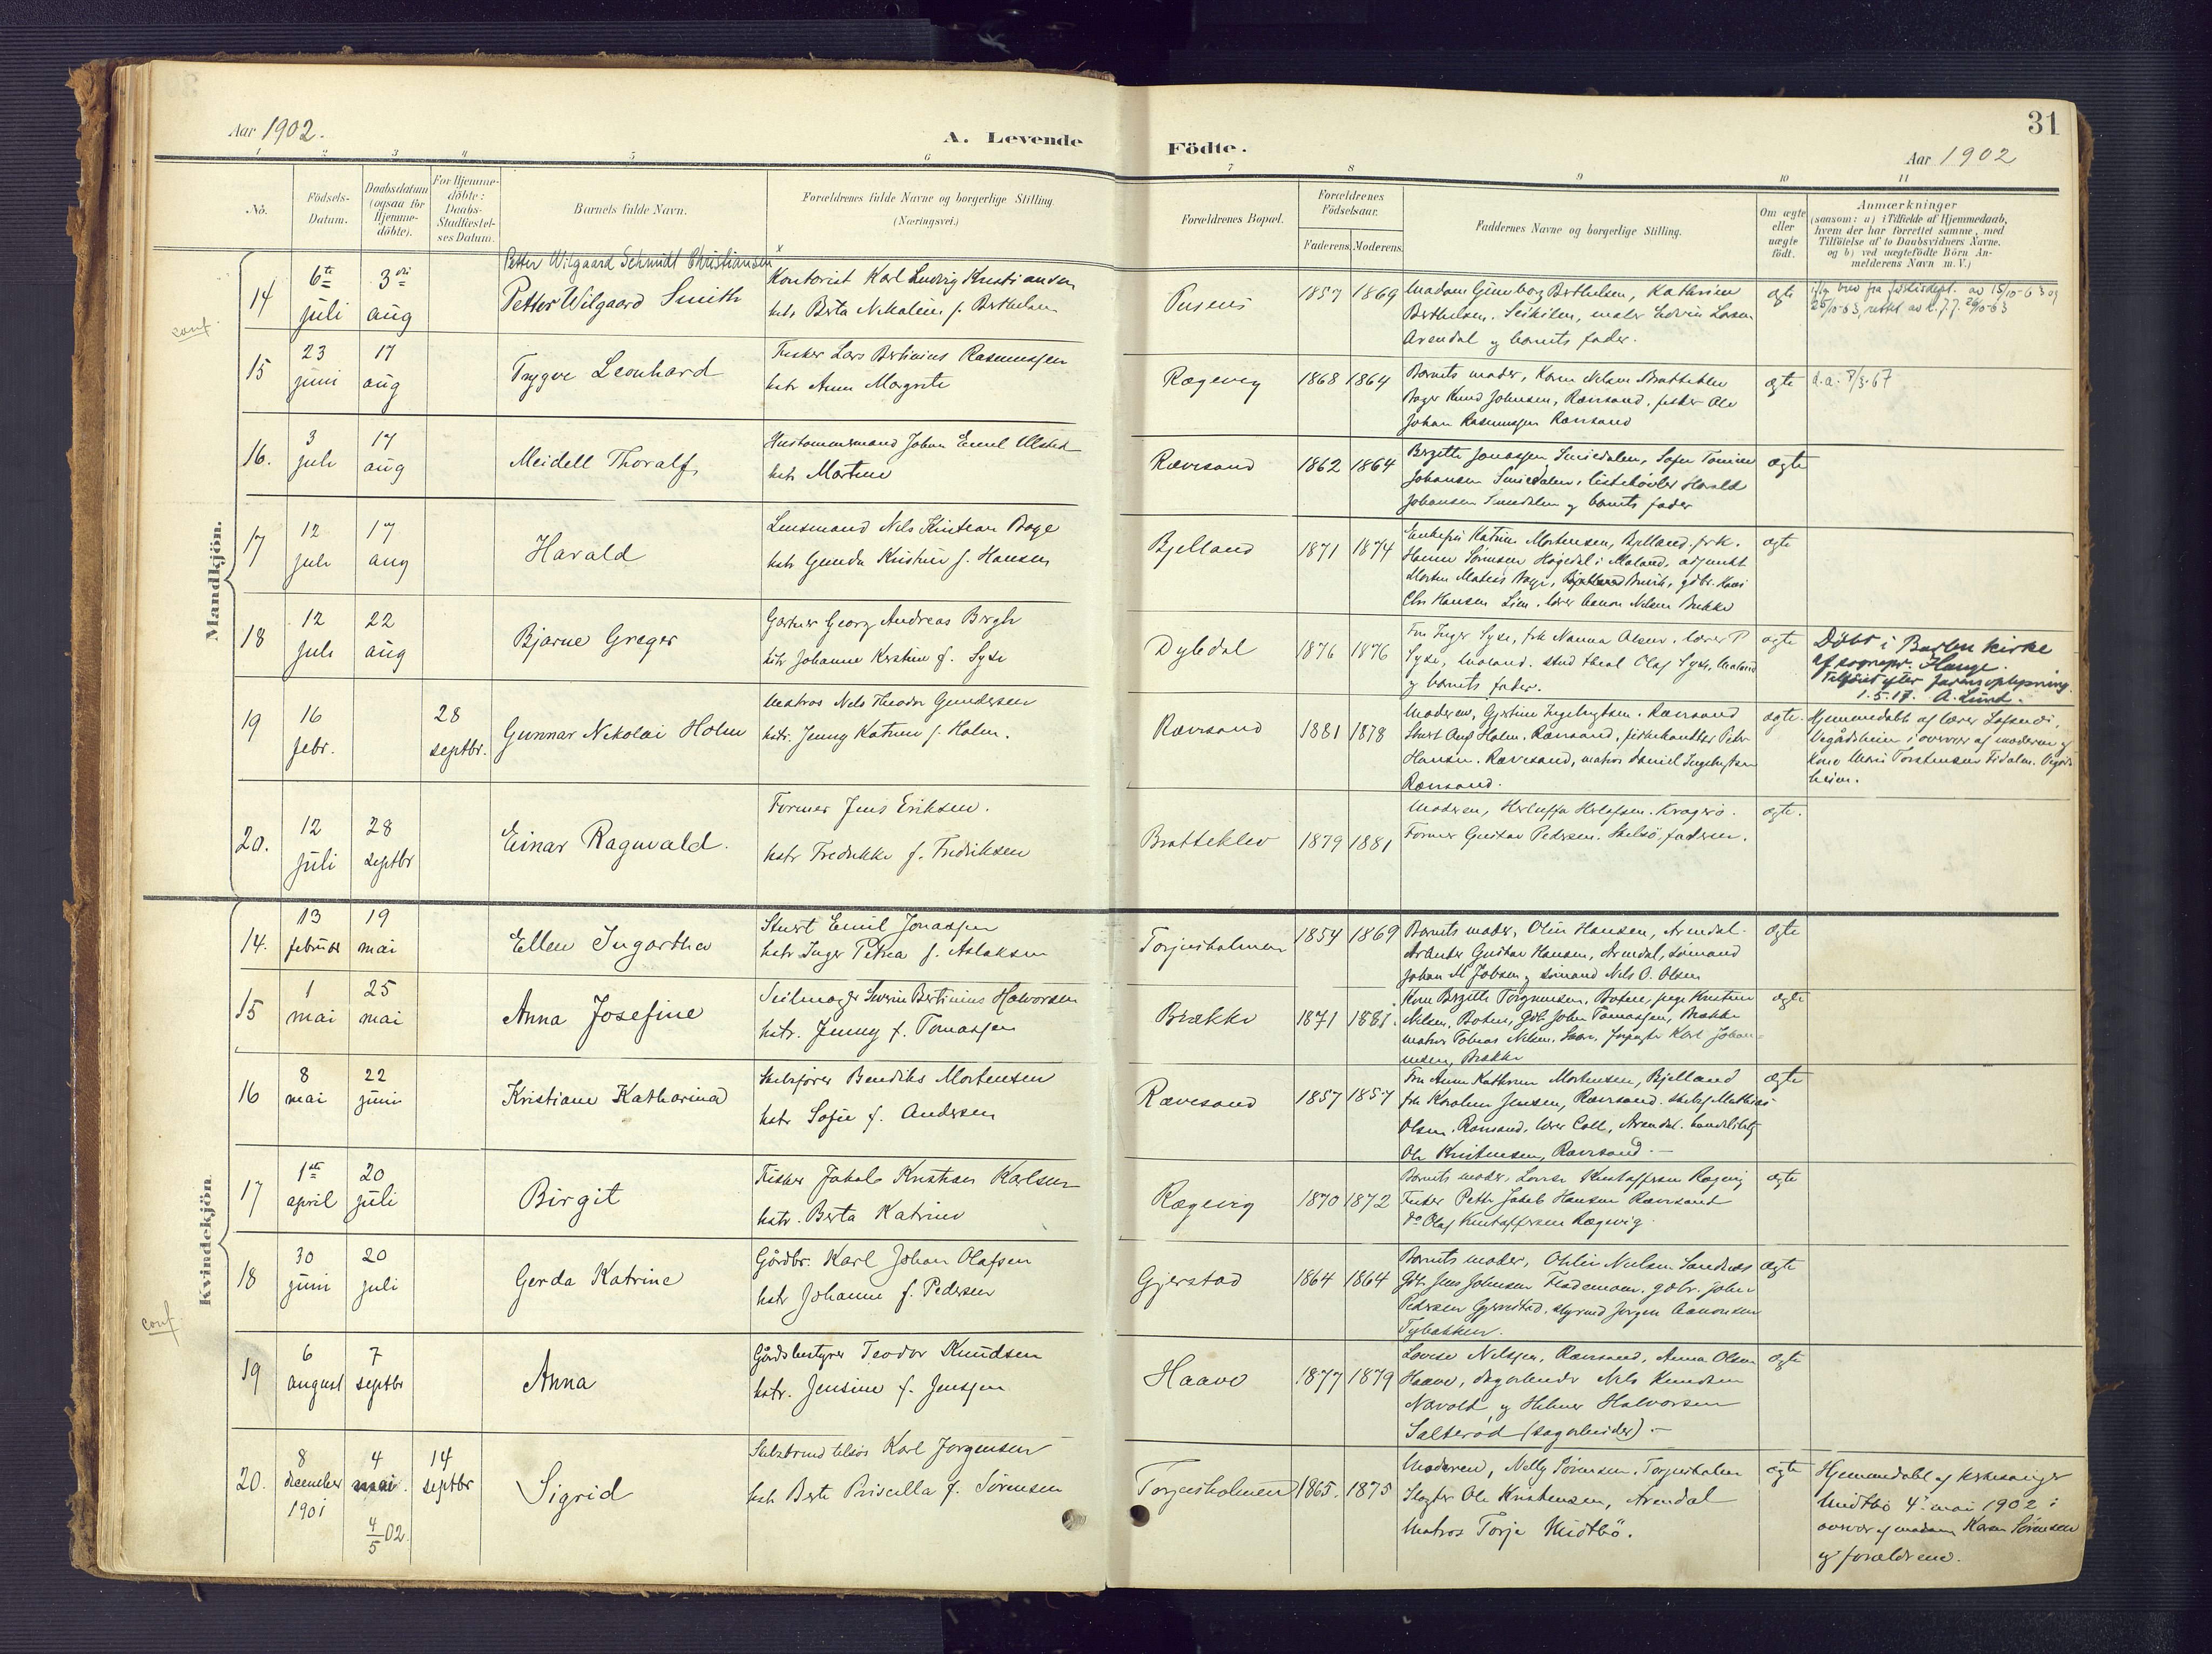 31
Aar 1902.
A. Levende
Födte.
Aar 1902
1 2 3 4 5 6 7 8 9 10 11
No.
Födsels-
Datum.
Daabsdatum
(ogsaa for
Hjemme-
döbte).
For Hjemme-
döbte:
Daabs-
Stadfæstel-
ses Datum.
Barnets fulde Navn.
Forældrenes fulde Navne og borgerlige Stilling
(Næringsvei.)
Forældrenes Bopæl.
Forældrenes
Födselsaar.
Faderens.
Moderens.
Faddernes Navne og borgerlige Stilling.
Om ægte
eller
uægte
födt.
Anmærkninger
(saasom: a) i Tilfælde af Hjemmedaab,
hvem der har forrettet samme, med
Tilföielse af to Daabsvidners Navne,
og b) ved uægtefödte Börn An-
melderens Navn m.V.)
Mandkjön.
conf.
14
6te
juli
3die
aug
Petter Wilgaard Schmidt Christiansen
Petter Wilgaard Smith
Kontorist Karl Ludvig Kristiansen
hstr Berta Nikoline f. Berthelsen
Pusnes
1857
1869
Madam Gunborg Berthelsen, Kathrine
Berthelsen, maler Edvin Larsen
Arendal og barnets fader.
ægte
15
23
juni
17
aug
Trygve Leonhard
Fisker Lars Bertinius Rasmussen
hstr Anne Margrete
Rægevig
1868
1864
Barnets moder, Karen Nilsen Bratteklev
Bager Knud Johnsen, Rævesand, fisker Ole
Johan Rasmussen Rævesand
ægte
d.a. 7/3-67
16.
3
juli
17
aug
Meidell Thoralf
Hustømmermand Johan Emil Ulsted
hstr Martine
Rævesand
1862
1864
Birgitte Jonassen Smiedalen, Sofie Tomine
Johansen Smiedalen, listehøvler Harald
Johansen Smiedalen og barnets fader
ægte
17
12
juli
17
aug
Harald
Lensmand Nils Kristian Boye
hstr Gunda Kristine f. Hansen
Bjelland
1871
1874
Enkefru Katrine Mortensen, Bjelland, frk.
Hanne Sørensen Hagedal i Moland, adjunkt
18
12
juli
22
aug
Bjarne Greger
Gartner Georg Andreas Bergh
hstr Johanne Kirstine f. Syse
Dybedal
1876
1876
Fru Inger Syse, frk Nanna Olsen, lærer P
Syse, Moland, stud theol Olaf Syse, Moland
og barnets fader.
ægte
Døbt i Barbu kirke
af sognepr. Hauge.
Tilføiet efter farens oplysning.
1.5.17. A. Lund.
19
16
febr.
28
septbr.
Gunnar Nikolai Holm
Matros Nils Theodor Gundersen
hstr. Jenny Katrine f. Holm.
Rævesand
1881
1878
Moderen, Gjertine Ingebrigtsen, Rævesand
Stuert Aug Holm, Rævesand, fiskehandler Peter
Hansen, Rævesand, matros Daniel Ingebrigtsen
Rævesand.
ægte.
Hjemmedøbt af lærer
Vegårdsheim i overvær af moderen og
kone Maria Torstensen Fidalen, Vegårds
heim.
20.
12
juli
28
septbr
Einar Ragnvald.
Former Jens Eriksen.
hstr Fredrikke f. Fredriksen
Bratteklev
1879
1881
Moderen, Herlofsen, Kragerø.
Former Gustav Pedersen, faderen.
ægte.
Kvindekjön.
14.
13
februar
19
mai
Ellen Ingartha
Stuert Emil Jonassen
hstr Inger Petrea f. Aslaksen
Torjusholmen
1854
1869
Barnets moder, Olise Hansen, Arendal
Arbeider Gustav Hansen, Arendal, sømand
Johan M Jobsen og sømand Nils O. Olsen
ægte
15
1
mai
25
mai
Anna Josefine
Seilmager Severin Bertinius Halvorsen
hstr. Jenny f. Tomassen
Brække
1871
1881.
Kone Birgitte Torgrimsen, Botne, pige Kristine
Nilsen, Botne, gdbr John Tomassen, Brække
matros Tobias Nilsen, Karl Johan-
nesen, Brække
ægte
16
8
mai
22
juni
Kristiane Katharina
Skibsfører Bendiks Mortensen
hstr Sofie f. Andersen
Rævesand
1857
1857
Fru Anne Kathrine Mortensen, Bjelland
frk Karoline Jensen, Rævesand, skibsf Mathias
Olsen, Rævesand, lærer Coll, Arendal,
Ole Kristensen, Rævesand.—
ægte
17
1ste
april
20
juli
Birgit
Fisker Jakob Kristian Karlsen
hstr. Berta Katrine
Rægevig
1870
1872
Barnets moder, Lovise Kristoffersen Rægevig
Fisker Peter Jakob Hansen Rævesand
do Olaf Kristoffersen Rægevig.
ægte
conf.
18
30
juni
20
juli
Gerda Katrine
Gårdbr. Karl Johan Olafsen
hstr Johanne f. Pedersen
Gjerstad
1864
1864
Barnets moder, Othlie Nilsen Sandnæs
Gdbr. Jens Johnsen Flademoen, gdbr. John
Pedersen Gjerstad, styrmd Jørgen Aanonsen
Tybakken.
ægte
19
6
august
7
septbr
Anna
Gårdsbestyrer Teodor Knudsen
hstr. Jensine f. Jenssen
Haave
1877
1879
Lovise Nilssen, Rævesand, Anna Olsen
Haave, dagarbeider Nils Knudsen
Narvold og Helmer Halvorsen
Salterød (sagarbeider).—
ægte
20.
8
december
1901
4
mai.
4/5 02.
14
septbr
Sigrid
Skibstømd Karl Jørgensen
hstr Berte Priscilla f. Sørensen
Torjusholmen
1865.
1875
Moderen, Nelly Sørensen, Torjusholmen
Slagter Ole Kristensen, Arendal
Matros Torje Midtbö.
ægte
Hjemmedøbt af kirkesanger
Midtbø 4. mai 1902 i
overvær af madam Karen Sørensen
og forældrene.